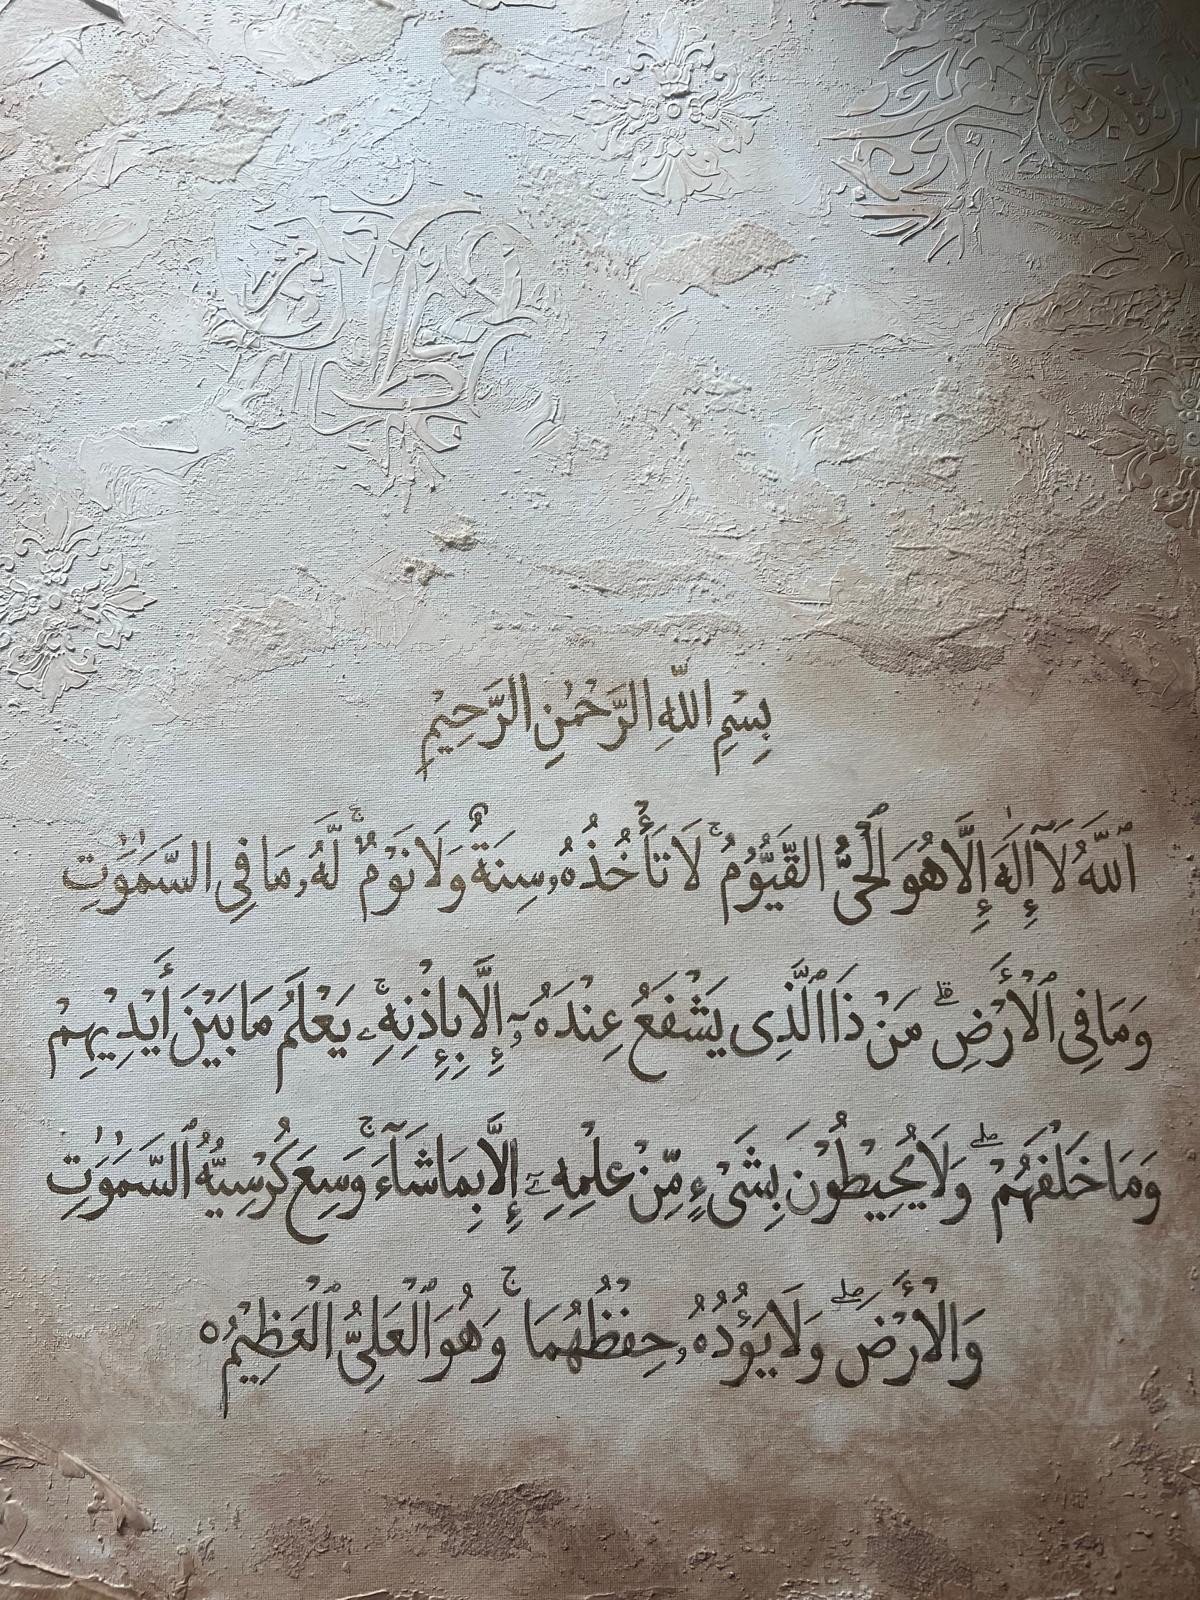 بِسْمِ اللّٰهِ الرَّحْمٰنِ الرَّحِيْمِ
اَللّٰهُ لَآ إِلٰهَ إِلَّا هُوَ ٱلْحَىُّ القَّيُّوْمُ ۚ لَا تَأْخُذُهُۥ سِنَةٌ وَلَا نَوْمٌ ۚ لَّهُۥ مَا فِى السَّمٰوٰتِ
وَمَا فِى ٱلْأَرْضِ ۗ مَنْ ذَا ٱلَّذِى يَشْفَعُ عِنْدَهُۥٓ إِلَّا بِإِذْنِهِۦ ۚ يَعْلَمُ مَا بَيْنَ أَيْدِيْهِمْ
وَمَا خَلْفَهُمْ ۖ وَلَا يُحِيْطُوْنَ بِشَىْءٍ مِّنْ عِلْمِهِۦٓ إِلَّا بِمَا شَآءَ ۚ وَسِعَ كُرْسِيُّهُ ٱلسَّمٰوٰتِ
وَالْأَرْضَ ۖ وَلَا يَؤُدُهُۥ حِفْظُهُمَا ۚ وَهُوَ ٱلْعَلِىُّ ٱلْعَظِيْمُ ٥